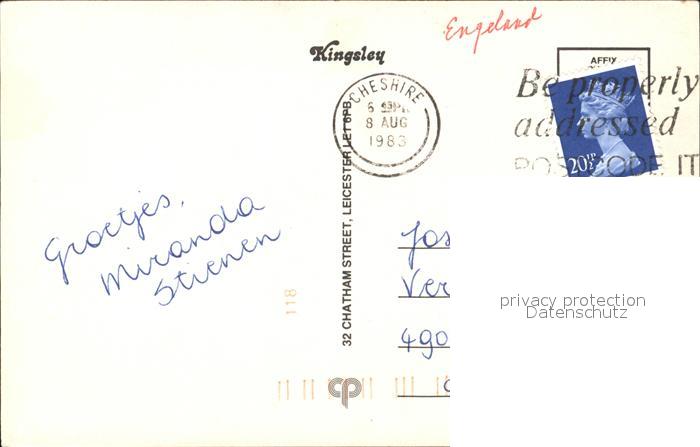 Engeland
Kingsley
AFFIX
CHESHIRE
8 AUG
1983
Be properly
addressed
POSTCODE IT
20½P
32 CHATHAM STREET, LEICESTER LE1 6PB.
Groetjes,
Miranda
Stienen
118
Jos
Ver
490
privacy protection
Datenschutz
cp